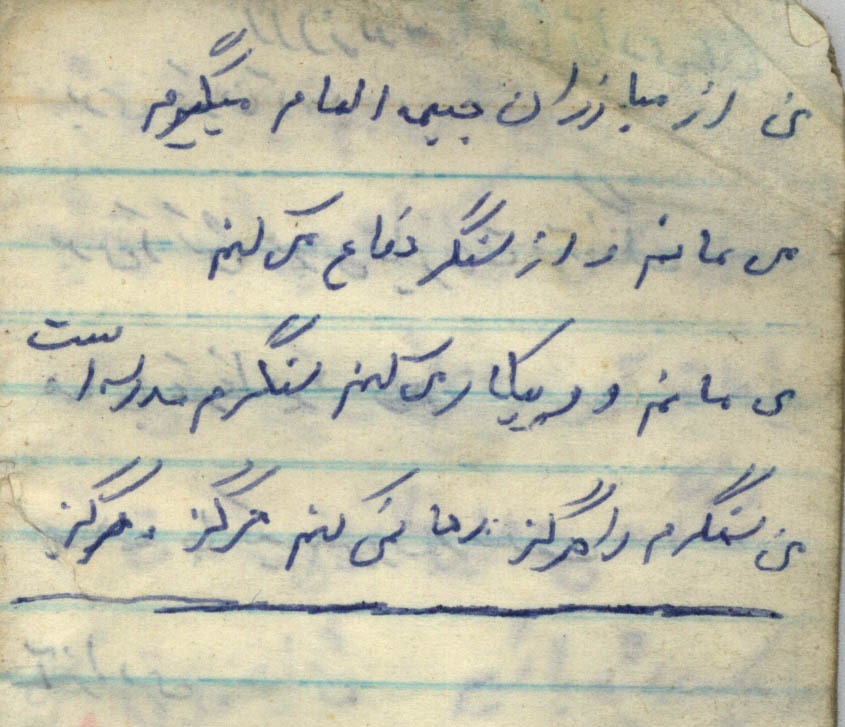 ی از مبارزان جبهه الهام میگیرم
می مانم و از سنگر دفاع می کنم
می مانم و پیکار می کنم سنگرم مدرسه است
من سنگرم را هرگز رها نمی کنم هرگز و هرگز